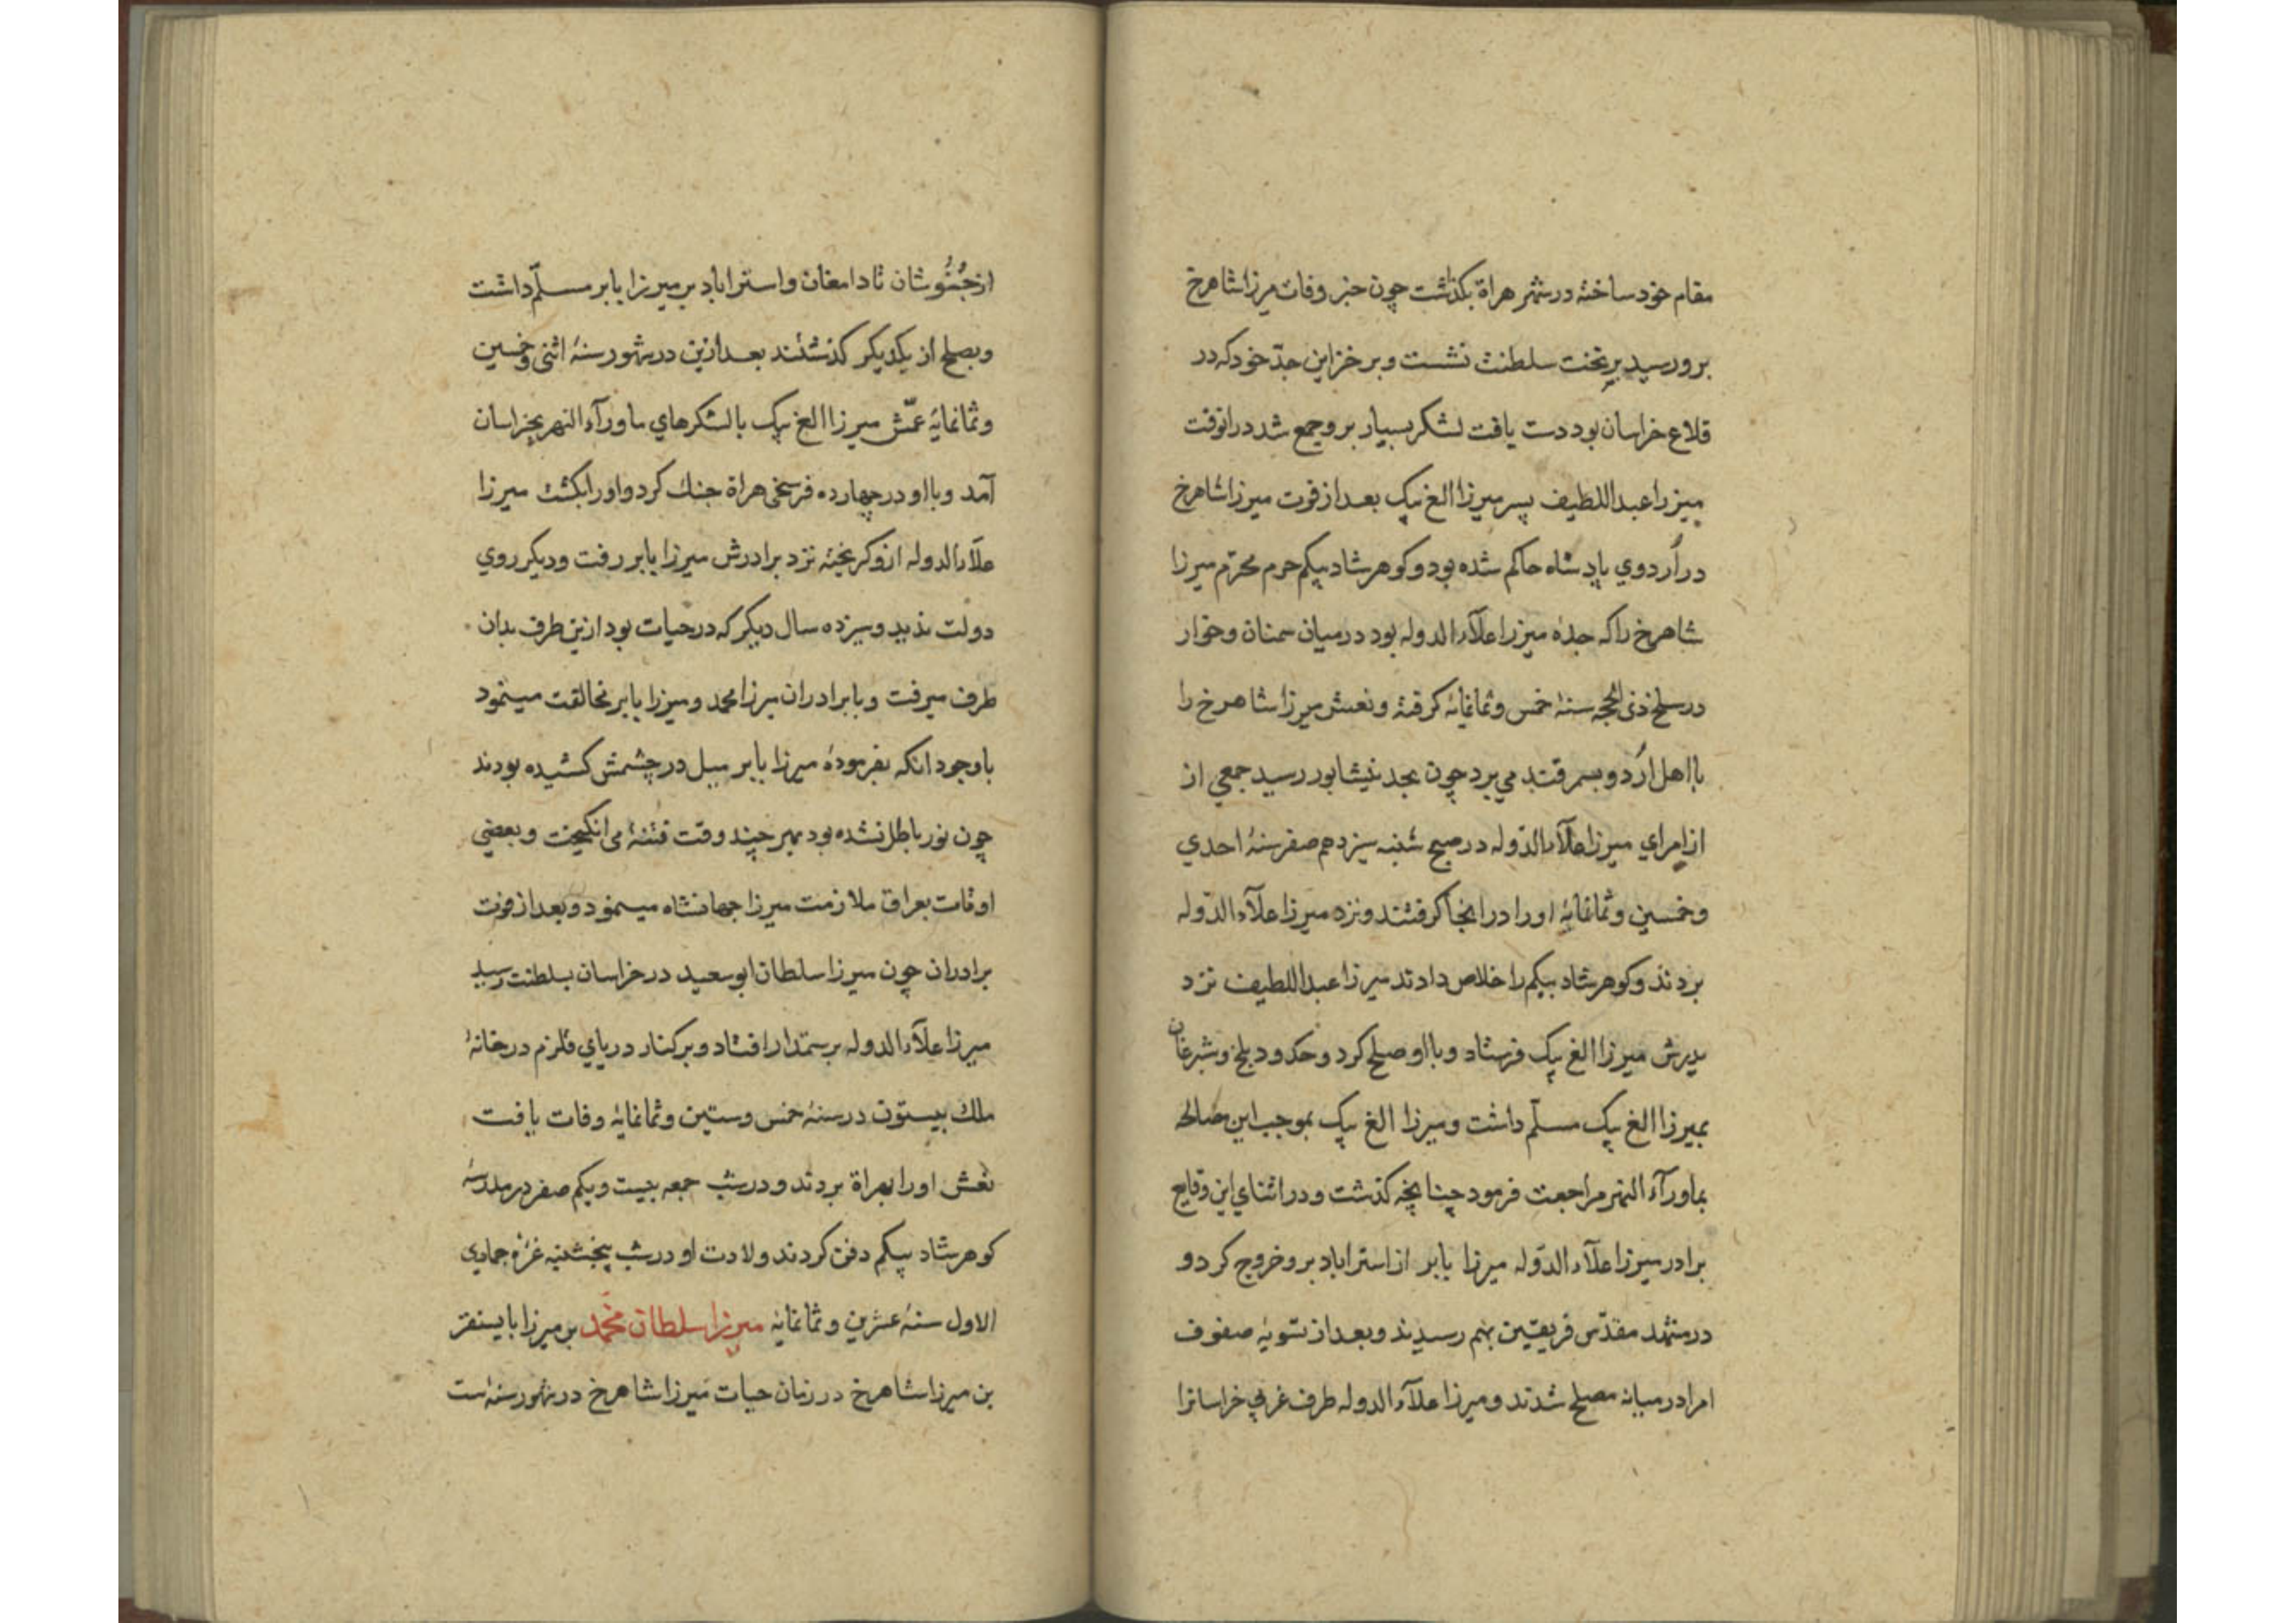 مقام خود ساخته در شهر هراة بگذاشت چون خبر وفات میرزا شاهرخ
برو رسید بر تخت سلطنت نشست و بر خزاین جدّ خود که در
قلاع خراسان بود دست یافت لشکر بسیار برو جمع شد در انوقت
میرزا عبداللطیف پسر میرزا الغ بیک بعد از فوت میرزا شاهرخ
در اُردوی پادشاه حاکم شده بود و کوهرشاد بیکم حرم محترم میرزا
شاهرخ را که جدهٔ میرزا علآء الدوله بود در میان سمنان و خوار
در سلخ ذی الحجه سنهٔ خمس و ثمانمایهٔ کرفته و نعش میرزا شاهرخ را
با اهل اُردو بسمرقند می برد چون بحد نیشابور رسید جمعی از
از امرای میرزا علآء الدّوله در صبح شنبه سیزدهم صفر سنهٔ احدی
و خمسین و ثمانمایهٔ او را در انجا کرفتند و نزد میرزا علآء الدّوله
بردند و کوهرشاد بیکم را خلاص دادند میرزا عبداللطیف نزد
پدرش میرزا الغ بیک فرستاد و با او صلح کرد و حدود بلخ و شبرغان
بمیرزا الغ بیک مسلّم داشت و میرزا الغ بیک بموجب این مصالحه
بماورآء النهر مراجعت فرمود چنانچه کذشت و در اثنای این وقایع
برادر میرزا علآء الدّوله میرزا بابر از استراباد برو خروج کرد و
در مشهد مقدّس فریقین بهم رسیدند و بعد از تسویهٔ صفوف
امرا در میانه مصلح شدند و میرزا علآء الدوله طرف غربی خراسانرا
از خبوشان تا دامغان و استراباد بر میرزا بابر مسلّم داشت
و بصلح از یکدیکر کذشتند بعد ازین در شهور سنهٔ اثنی و خمسین
و ثمانمایهٔ عمّش میرزا الغ بیک با لشکرهای ماورآء النهر بخراسان
آمد و با او در چهارده فرسخی هراة جنک کرد و او را بکشت میرزا
علآء الدوله ازو کریخته نزد برادرش میرزا بابر رفت و دیکر روی
دولت ندید و سیزده سال دیکر که در حیات بود ازین طرف بدان
طرف میرفت و با برادران میرزا محمد و میرزا بابر مخالفت مینمود
با وجود انکه بفرمودهٔ میرزا بابر میل در چشمش کشیده بودند
چون نور باطل نشده بود بهر چند وقت فتنهٔ می انکیخت و بعضی
اوقات بعراق ملازمت میرزا جهانشاه مینمود و بعد از فوت
برادران چون میرزا سلطان ابوسعید در خراسان بسلطنت رسید
میرزا علآء الدوله برستمدار افتاد و بر کنار دریای قلزم در خانهٔ
ملک بیستون در سنهٔ خمس و ستین و ثمانمایهٔ وفات یافت
نعش او را بهراة بردند و در شب جمعه بیست و یکم صفر در مدرسهٔ
کوهرشاد بیکم دفن کردند ولادت او در شب پنجشنبه غرّهٔ جمادی
الاول سنهٔ عشرین و ثمانمایهٔ میرزا سلطان محمّد بن میرزا بایسنقر
بن میرزا شاهرخ در زمان حیات میرزا شاهرخ در شهور سنهٔ ست